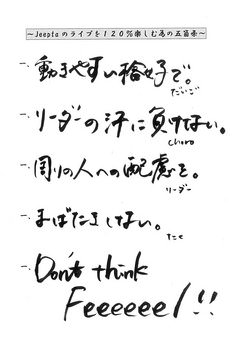 ~Jeeptaのライブを120%楽しむ為の五箇条~
一、動きやすい格好で。
だいご
一、リーダーの汗に負けない。
Choro
一、周りの人への配慮を。
リーダー
一、まばたきしない。
一、Don't think
Feeeeeel!!